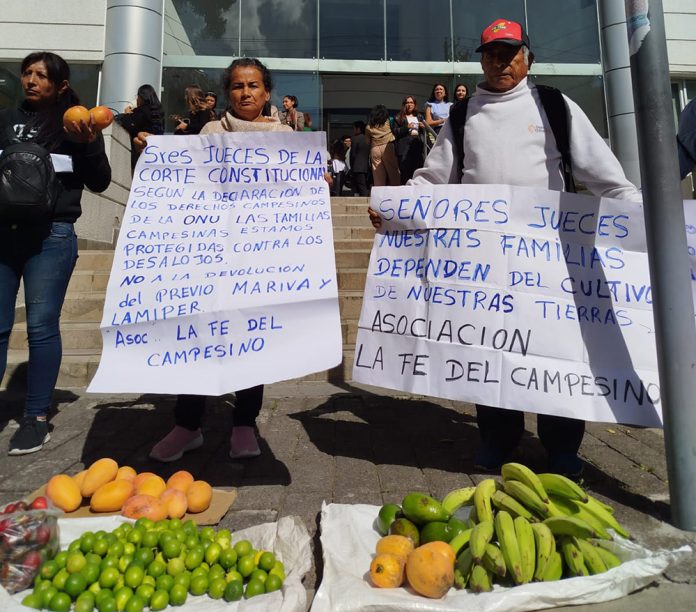 Sres JUECES DE LA
CORTE CONSTITUCIONAL
SEGUN LA DECLARACIÓN DE
LOS DERECHOS CAMPESINOS
DE LA ONU LAS FAMILIAS
CAMPESINAS ESTAMOS
PROTEGIDAS CONTRA LOS
DESALOJOS.
NO A LA DEVOLUCION
del PREVIO MARIVA Y
LAMIPER.
Asoc.. LA FE DEL
CAMPESINO
SEÑORES JUECES
NUESTRAS FAMILIAS
DEPENDEN DEL CULTIVO
DE NUESTRAS TIERRAS,
ASOCIACION
LA FE DEL CAMPESINO